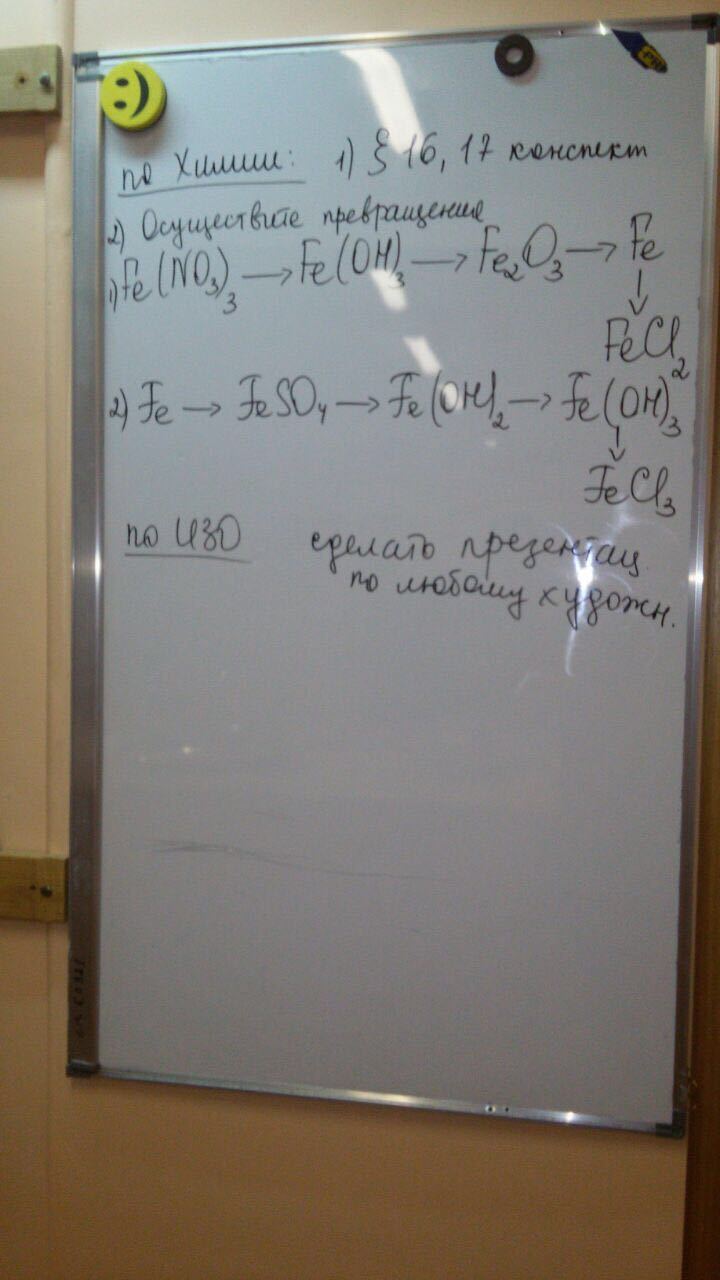 по Химии: 1) § 16, 17 конспект
2) Осуществите превращение
1) Fe(NO₃)₃ → Fe(OH)₃ → Fe₂O₃ → Fe
↓
FeCl₂
2) Fe → FeSO₄ → Fe(OH)₂ → Fe(OH)₃
↓
FeCl₃
по ИЗО сделать презентац.
по любому художн.